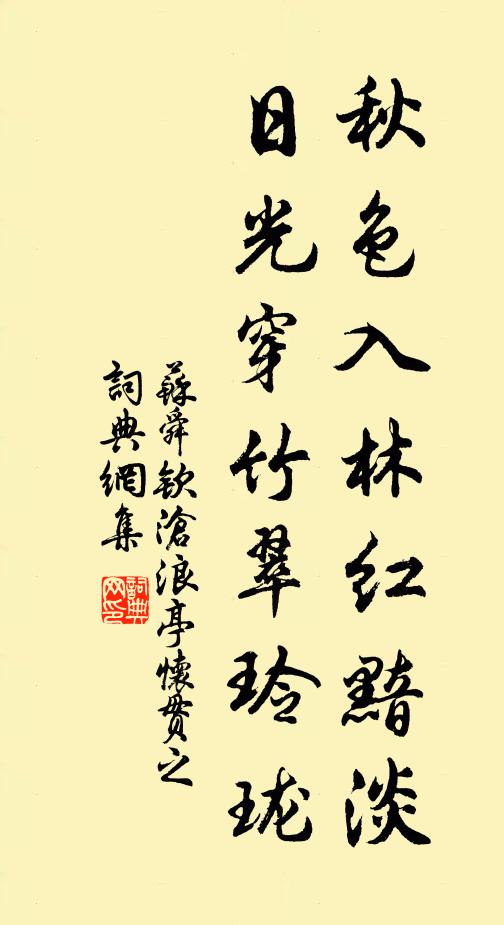 秋色入林红黯淡
日光穿竹翠玲珑
蘇舜欽滄浪亭懷貫之
詞典網集
詞典網印